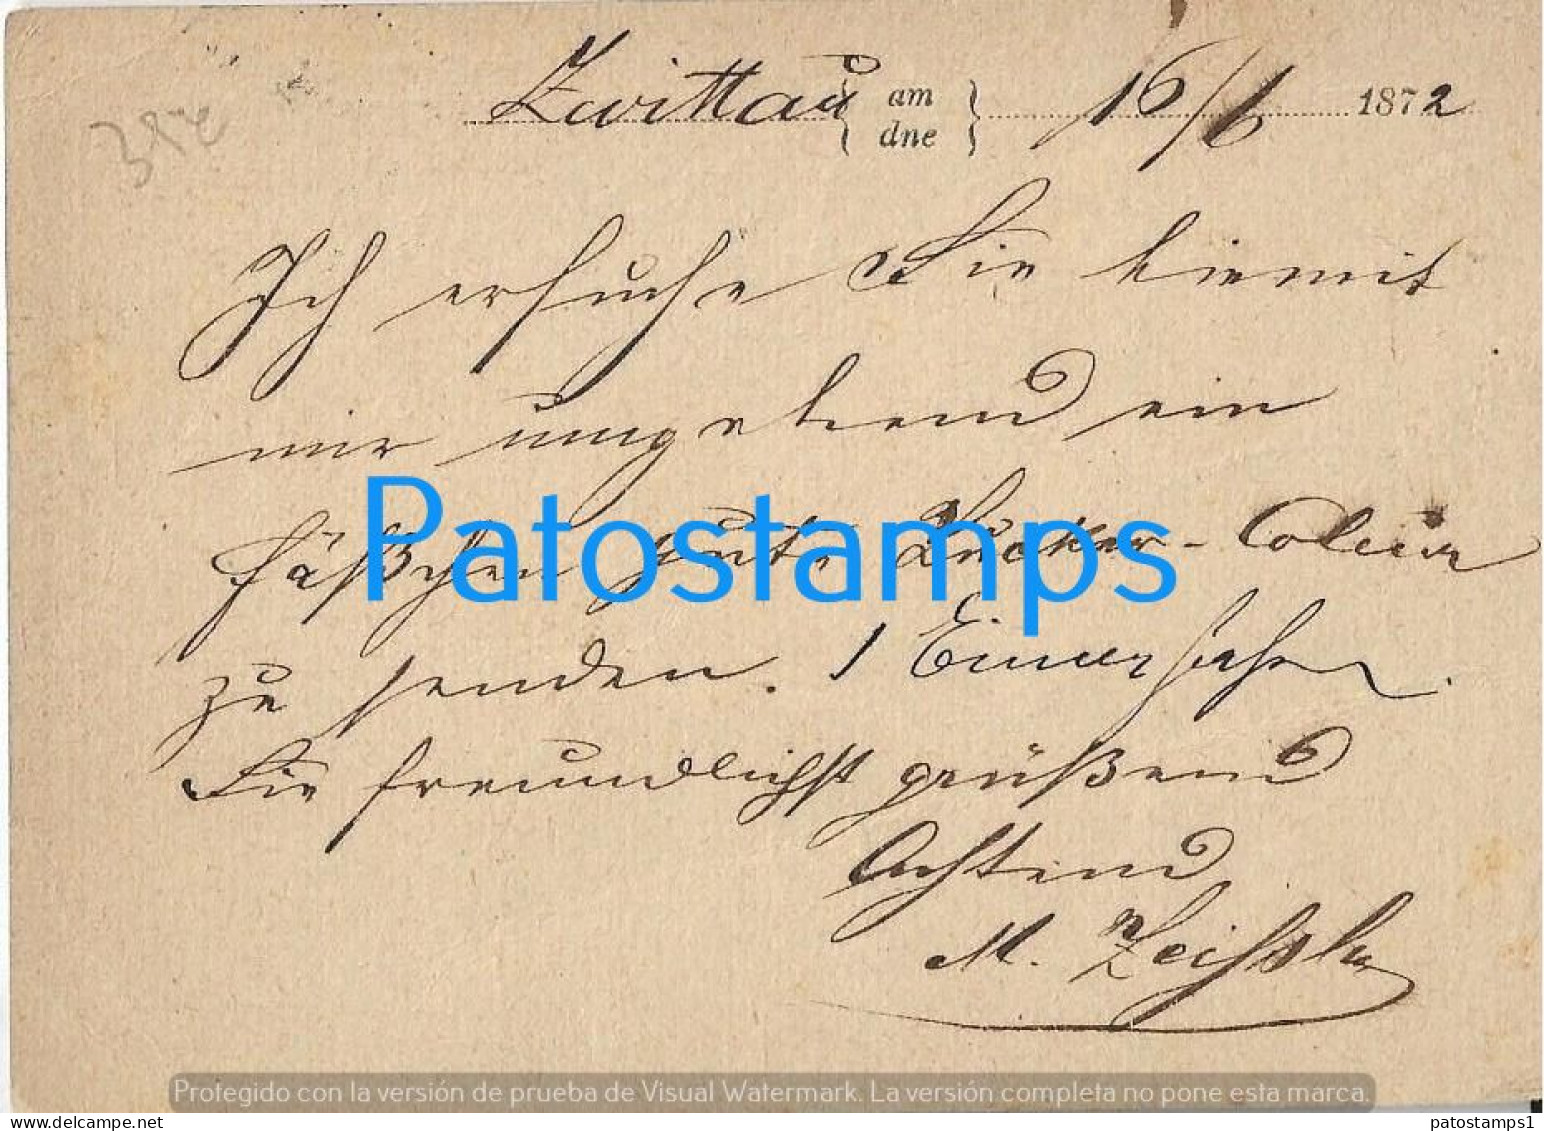 Zwittau { am / dne } 16/6 1872
Ich ersuche Sie hiemit
mir umgehend ein
Fäßchen gute Zucker-Coleur
zu senden. 1 Eimer
Sie freundlichst grüßend
Achtend
M. Zeissler
Patostamps
Protegido con la versión de prueba de Visual Watermark. La versión completa no pone esta marca.
www.delcampe.net
patostamps1